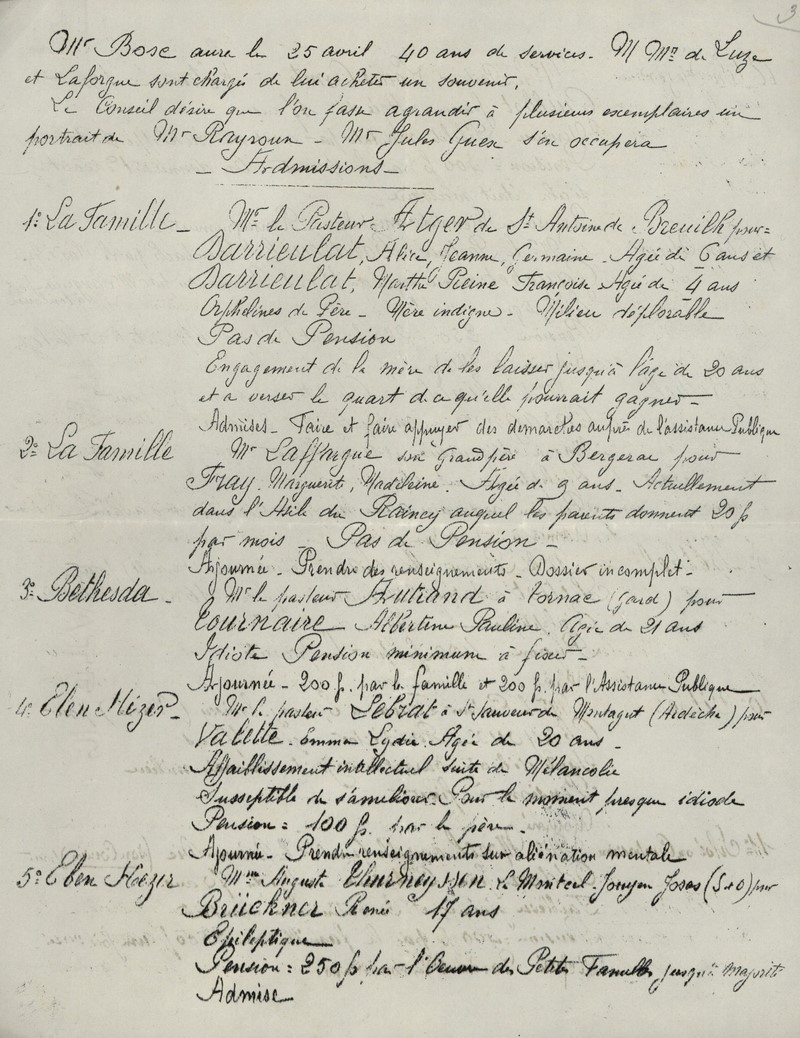 3
Mr Bosc aura le 25 avril 40 ans de services. M Mrs de Luze
et Laforgue sont chargés de lui acheter un souvenir.
Le Conseil désire que l'on fasse agrandir à plusieurs exemplaires un
portrait de Mr Rayroux - Mr Jules Guex s'en occupera
- Admissions -
1º La Famille - Mr le Pasteur Atger de St Antoine de Breuilh pour =
Darrieulat, Alice, Jeanne, Germaine. Agée de 6 ans et
Darrieulat, Marthe Reine Françoise Agée de 4 ans
Orphelines de Père - Mère indigne - Milieu déplorable
Pas de Pension
Engagement de la mère de les laisser jusqu'à l'âge de 20 ans
et a verser le quart de ce qu'elle pourrait gagner -
Admises - Faire et faire appuyer des demarches auprès de l'assistance Publique
2º La Famille Mr Laffargue son Grand père à Bergerac pour
Fray. Marguerite, Madeleine. Agée de 9 ans - Actuellement
dans l'Asile du Raincy auquel les parents donnent 20 f
par mois - Pas de Pension -
Ajournée - Prendre des renseignements - Dossier incomplet -
3º Bethesda - Mr le pasteur Autrand à Tornac (Gard) pour
Tournaire Albertine Pauline. Agée de 21 ans
Idiote Pension minimum à fixer -
Ajournée - 200 f. par la famille et 200 f. par l'Assistance Publique
4º Eben Hézer - Mr le pasteur Lebrat à St Sauveur de Montagut (Ardèche) pour
Valette. Emma Lydie. Agée de 20 ans -
Affaiblissement intellectuel suite de Mélancolie
Susseptible de s'améliorer. Pour le moment presque idiode
Pension = 100 f. par le père -
Ajournée - Prendre renseignements sur aliénation mentale
5º Eben Hézer Mme Auguste Thurneyssen Le Montcel - Jouy en Josas (S et O) pour
Brückner Renée 17 ans
Epileptique
Pension = 250 f par l'Oeuvre des Petites Familles jusqu'à majorité
Admise